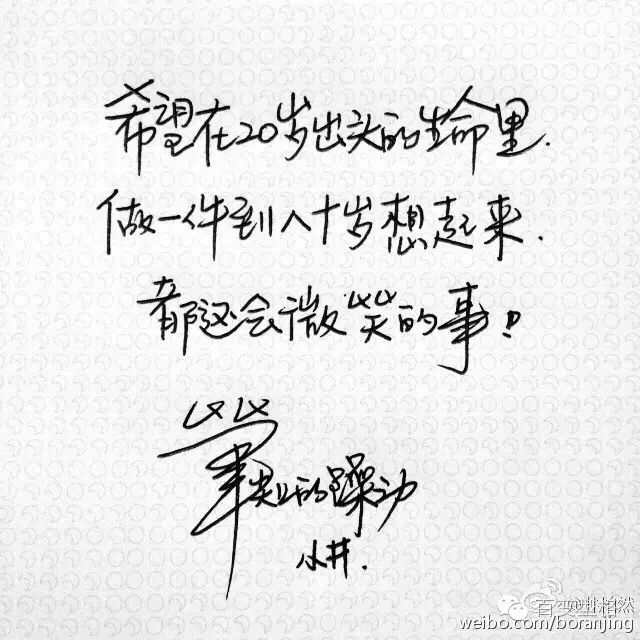 希望在20岁出头的生命里.
做一件到八十岁想起来.
都还会微笑的事!
笔尖上的躁动
小井.
百变井柏然
weibo.com/boranjing